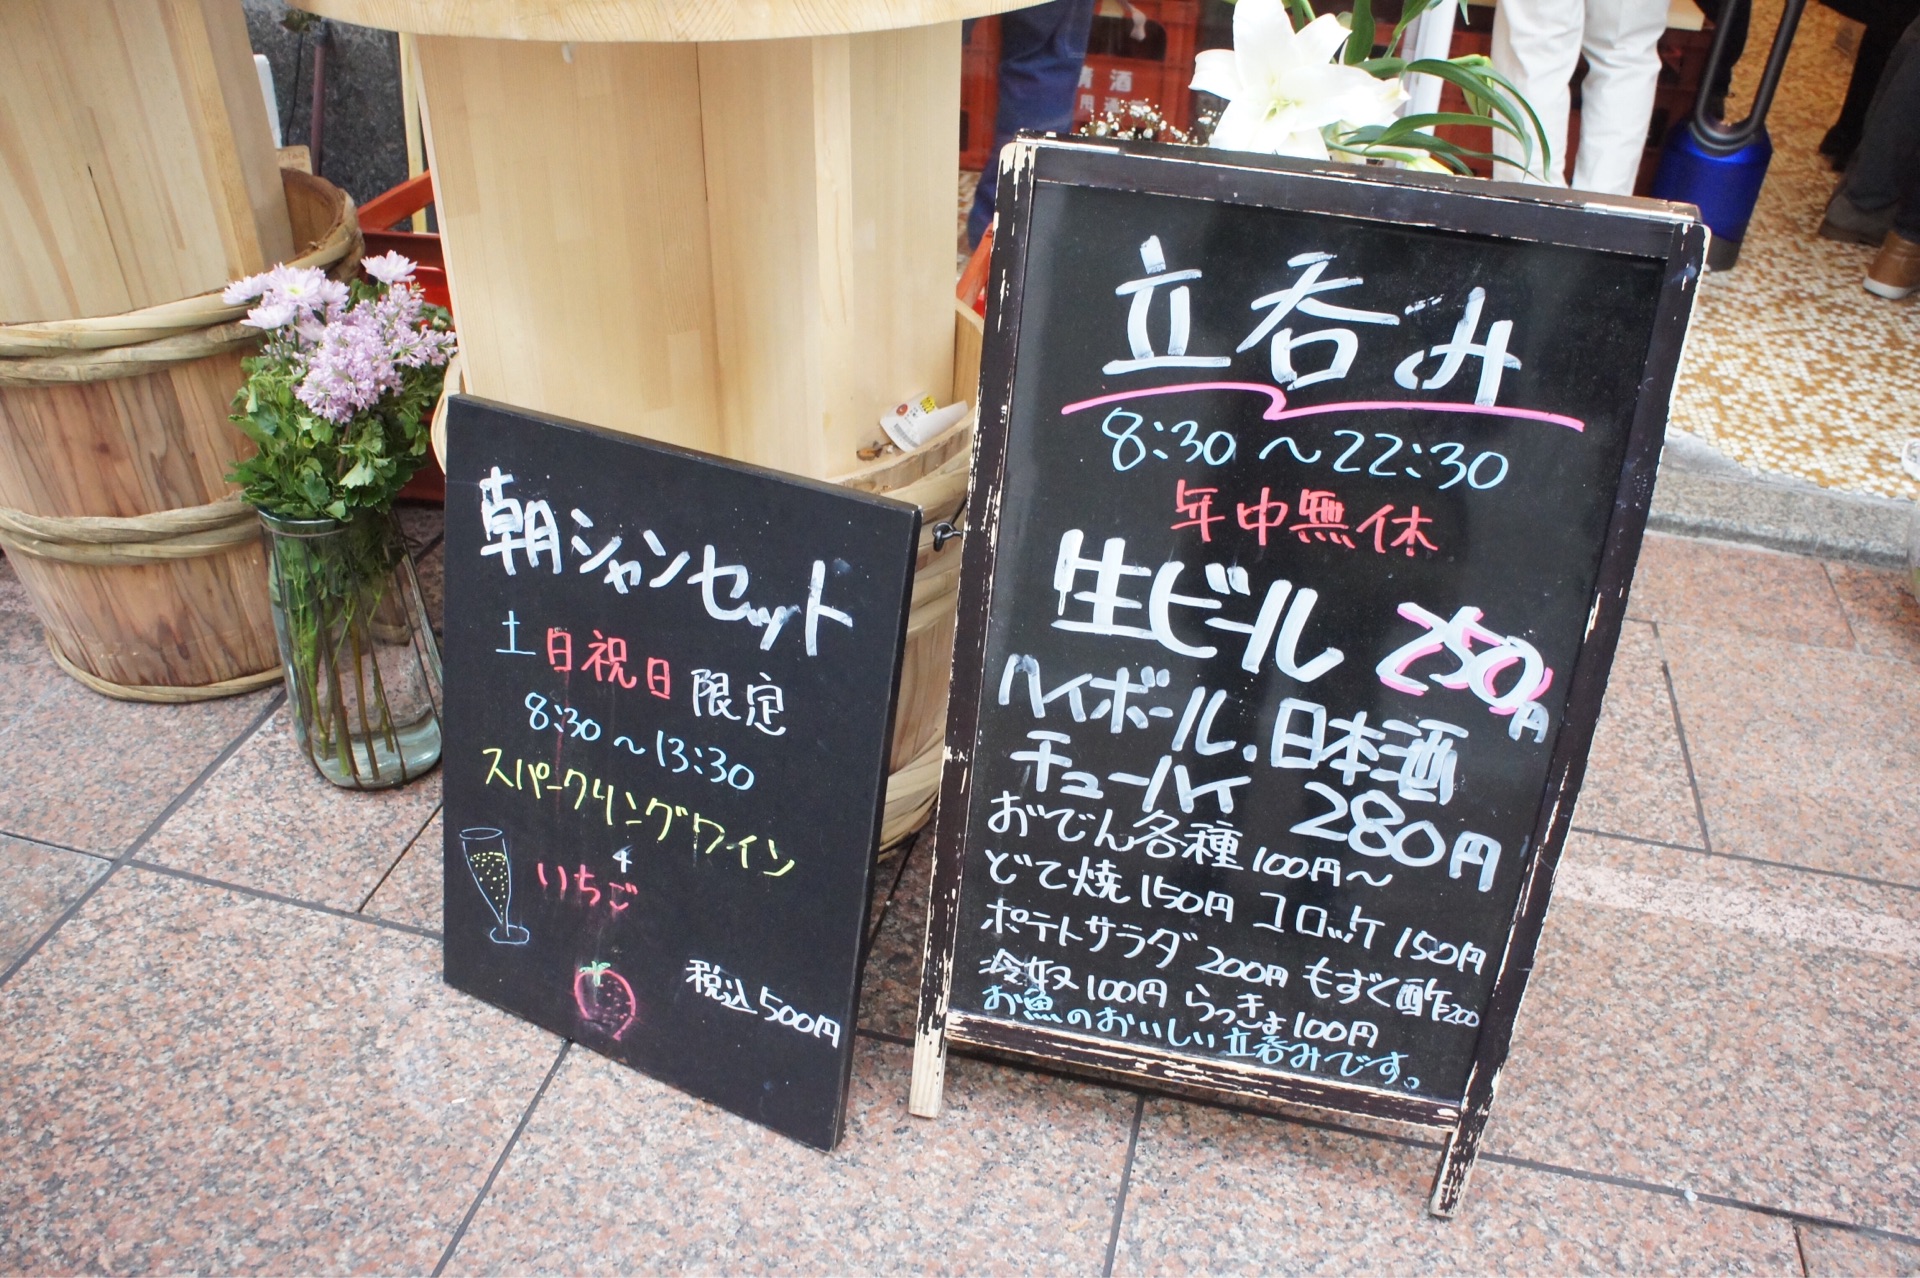 清酒
朝シャンセット
土日祝日限定
8:30～13:30
スパークリングワイン
いちご
税込500円
立呑み
8:30～22:30
年中無休
生ビール 250円
ハイボール.日本酒
チューハイ 280円
おでん各種100円～
どて焼150円 コロッケ150円
ポテトサラダ200円 もずく酢200
冷奴100円 らっきょ100円
お魚のおいしい立呑みです。